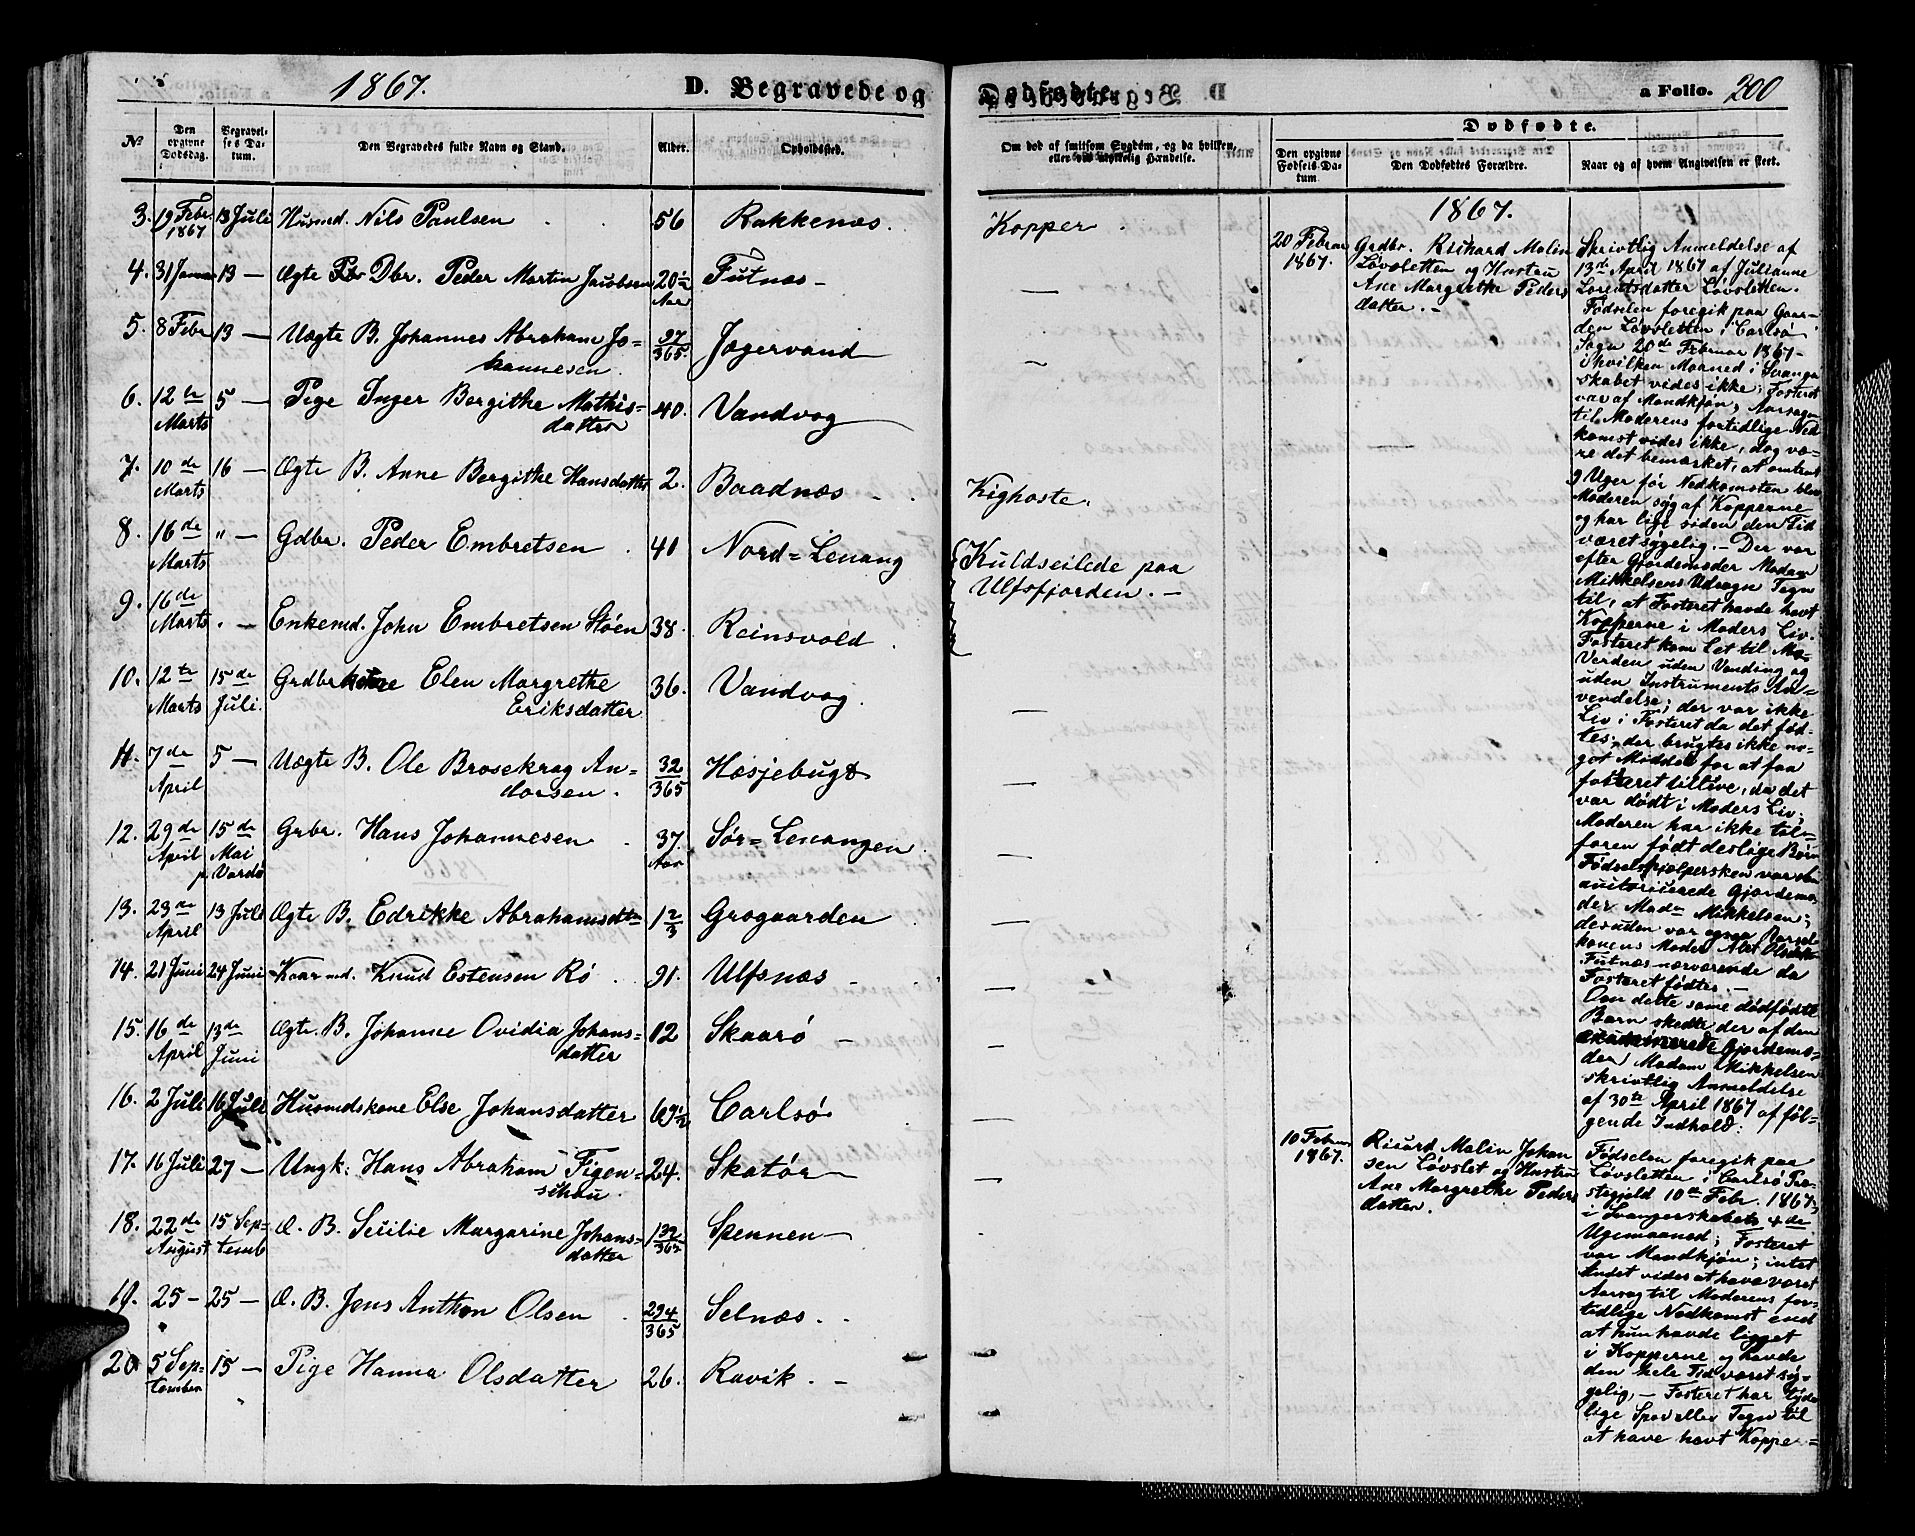 1867.
D. Begravede og
Dødfødte
a Folio. 200
Dødfødte.
No
Den opgivne Dødsdag.
Begravelses Datum.
Den Begravedes fulde Navn og Stand.
Alder.
Opholdssted.
Om død af smitsom Sygdom, og da hvilken,
eller ved ulykkelig Hændelse.
Den opgivne Fødsels Datum
Den Dødfødtes Forældre.
Naar og af hvem Angivelsen er skeet.
3. 19 Febr. 1867 13 Juli Husmd. Nils Paulsen 56 Rakkenæs. Kopper.
4. 31 Januar 13 — Ægte Dbr. Peder Martin Jacobsen 20 1/2 Aar Futnæs — —
5. 8 Febr 13 — Uægte B. Johannes Abraham Jo=
hannesen. 37/365 Jægervand —
6. 12te Marts 5 — Pige Inger Bergithe Mathis=
datter 40. Vandvog
7. 10de Marts 16 — Ægte B. Anne Bergithe Hansdatter 2. Baadnæs — Kighoste.
8. 16de Marts " — Gdbr. Peder Embretsen 41 Nord=Lenang Kuldseilede paa
Ulfsfjorden. —
9. 16de Marts " — Enkemd. John Embretsen Støen 38. Reinsvold
10. 12te Marts 15de Juli. Grdbr kone Elen Margrethe
Eriksdatter 36. Vandvog —
11. 7de April 5 — Uægte B. Ole Brosekrog An=
dorsen. 32/365 Hæsjebugt —
12. 29de April 15de Mai p. Vardø Grbr. Hans Johannesen 37. Aar Sør=Lenangen —
13. 23de April 13 Juli Ægte B. Edrikke Abrahamsdtr 1 2/3 Grøgaarden —
14. 21 Juni 24 Juni Kaarmd. Knud Estensen Rø 91. Ulfsnæs — —
15. 16de April 13de Juni Ægte. B. Johanne Ovidia Johans=
datter 12 Skaarø — —
16. 2 Juli 16 Juli Husmdskone Else Johansdatter 69 1/2 Carlsø —
17. 16 Juli 27 — Ungk. Hans Abraham Figen=
schau 24. Skatør —
18. 22de August 15 Septemb Æ. B. Secilie Margarine Johans=
datter 1 32/365 Spennen —
19. 25 — 25 — Æ. B. Jens Anthon Olsen 234/365 Selnæs.
20 5 September 15 — Pige Hanna Olsdatter 26. Ravik. —
1867.
20 Februar 1867.
Grdbr. Richard Malin
Løvsletten og Hustru
Ane Margrethe Peders
datter. —
Skrivtlig Anmeldelse af
13de April 1867 af Julianne
Lorentsdatter Løvsletten.
Fødselen foregik paa Gaar=
den Løvsletten i Carlsø
Sogn 20de Februar 1867—
i hvilken Maaned i Svanger
skabet vides ikke; Fosteret
var af Mandkjøn; Aarsagen
til Moderens fortidlige Ned
komst vides ikke, dog væ=
re det bemærket, at omtrent
9 Uger før Nedkomsten blev
Moderen syg af Kopperne
og har lige siden den Tid
været sygelig. — Der var
efter Gjordemoder Madam
Mikkelsens Udsagn Tegn
til, at Fosteret havde havt
Kopperne i Moders Liv.
Fosteret kom let til
Verden uden Vending og
uden Instruments An=
vendelse; der var ikke
Liv i Fosteret da det fød=
tes; der brugtes ikke no=
got Middel for at faa
fosteret tillive, da det
var dødt i Moders Liv;
Moderen har ikke til=
foren født deslige Børn
Fødselshjælpersken var den
autoriserede Gjordemo=
der Madm Mikkelsen;
desuden var ogsaa Barsel
konens Moder Alet Olsdatter
Futnæs nærværende da
Fosteret fødtes. —
Om dette same dødfødte
Barn skedte der af den
examinerede Gjordemo=
der Madam Mikkelsen
skrivtlig Anmeldelse
af 30te April 1867 af føl=
gende Indhold:
10 Februar 1867.
Risard Malin Johan
sen Løvslet og Hustru
Ane Margrethe Peders
datter.
Fødselen foregik paa
Løvsletten i Carlsø Præ
stegjeld 10de Febr. 1867,
i Svangerskabets 4de
Ugemaaned; Fosteret
var Mandkjøn; intet
Andet vides at have været
Aarsag til Moderens for=
tidlige Nedkomst end
at hun havde ligget
i Kopperne og havde
den hele Tid været sy=
gelig. — Fosteret har tyde
lige Spor eller Tegn til
at have havt Kopper=